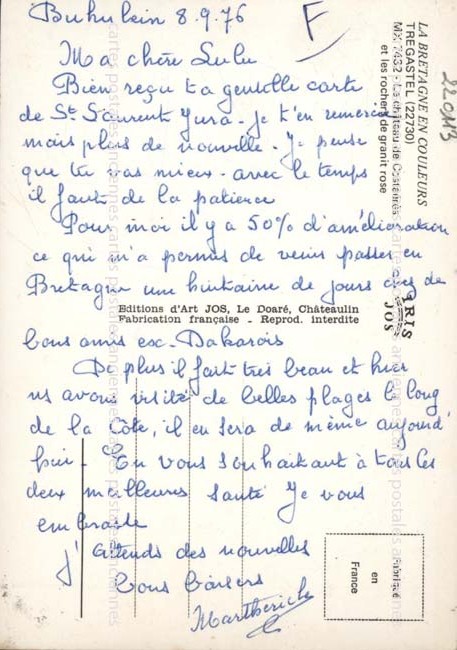 8.9.76
F
Ma chère Lulu
Bien reçu ta gentille carte
de St Laurent Jura - je t'en remercie
mais plus de nouvelle - Je pense
que tu vas mieux - avec le temps
il faut de la patience
Pour moi il y a 50% d'amélioration
ce qui m'a permis de venir passer en
Bretagne une huitaine de jours chez de
bons amis ex-Dakarois
De plus il fait très beau et hier
ns avons visité de belles plages le long
de la Côte, il en sera de même aujourd'
hui - En vous souhaitant à tous les
deux meilleures santé Je vous
embrasse
J'attends des nouvelles
Bons baisers
LA BRETAGNE EN COULEURS
TREGASTEL (22730)
MX 7432 - Le château de Costaérès
et les rochers de granit rose
22 0113
IRIS
JOS
Editions d'Art JOS, Le Doaré, Châteaulin
Fabrication française - Reprod. interdite
Fabriqué
en
France
cartes postales anciennes